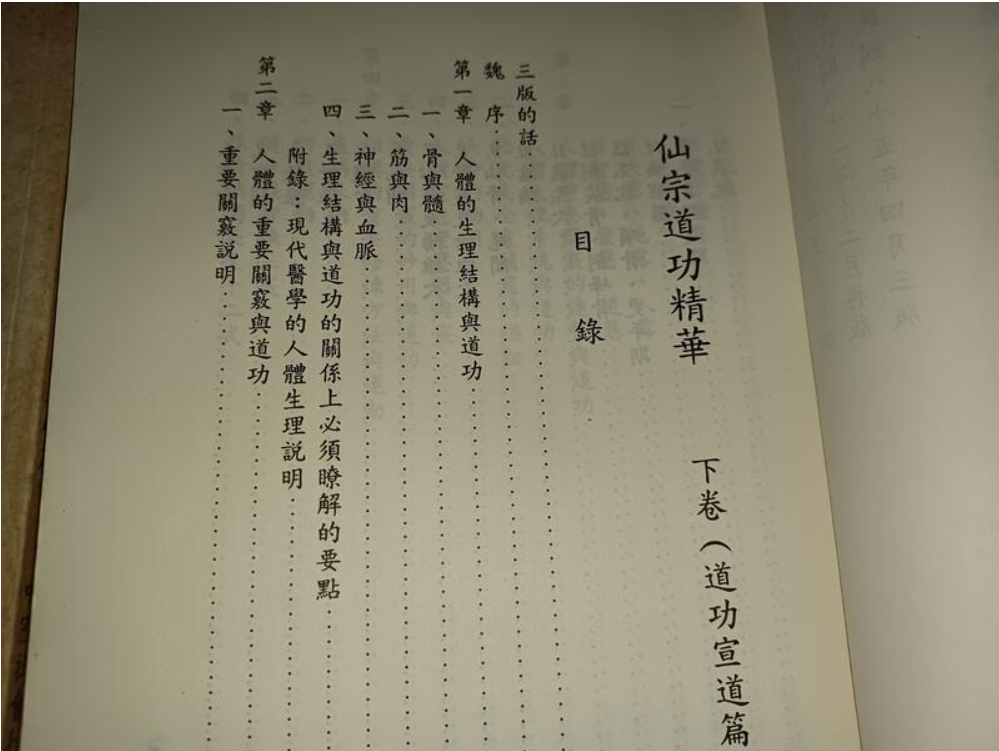 仙宗道功精華　下卷（道功宣道篇
目　錄
三版的話
魏　序
第一章　人體的生理結構與道功
一、骨與髓
二、筋與肉
三、神經與血脈
四、生理結構與道功的關係上必須瞭解的要點
附錄：現代醫學的人體生理説明
第二章　人體的重要關竅與道功
一、重要關竅説明